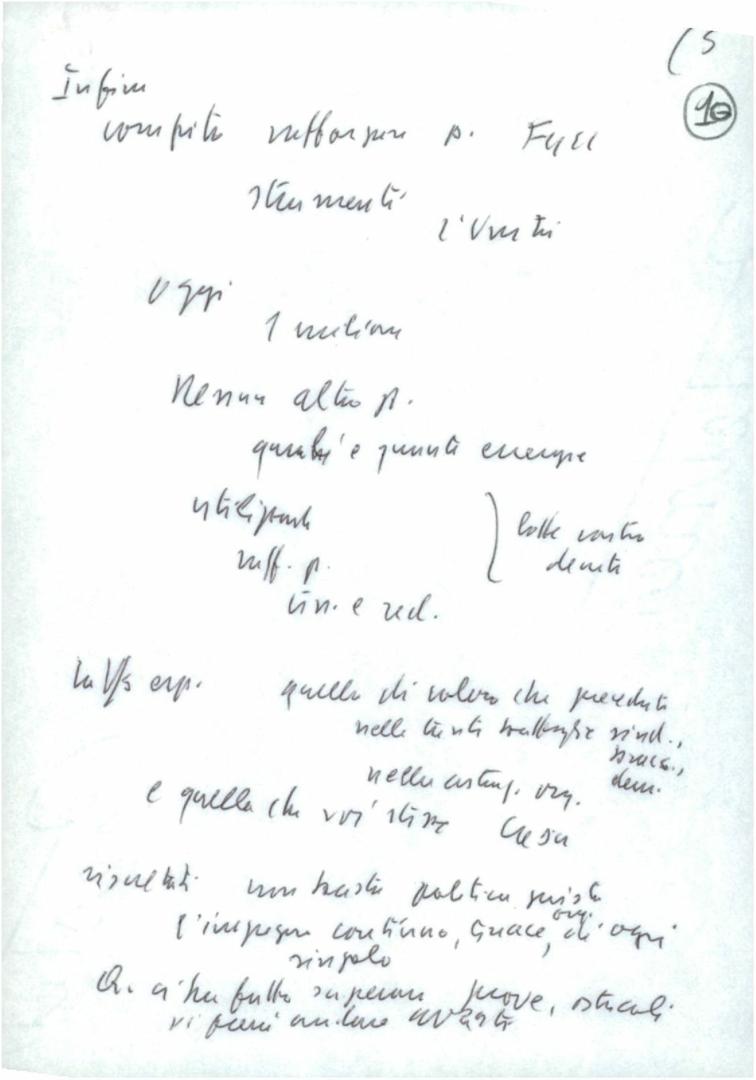 (5
10
Infine
compito rafforzare p. FGCI
strumenti
l'Unità
Oggi
1 milione
Nessun altro p.
quante energie
utilizzarle
raff. p.
un. e red.
lotte vostre
La Vs esp.
quella di coloro che preceduti
nelle tante battaglie sind.,
dem.
nella costruz. org.
e quella che voi stessi
risultati non basta politica giusta
l'impegno continuo, tenace, di ogni
org.
singolo
Q. ci ha fatto superare prove, ostacoli
vi farà andare avanti